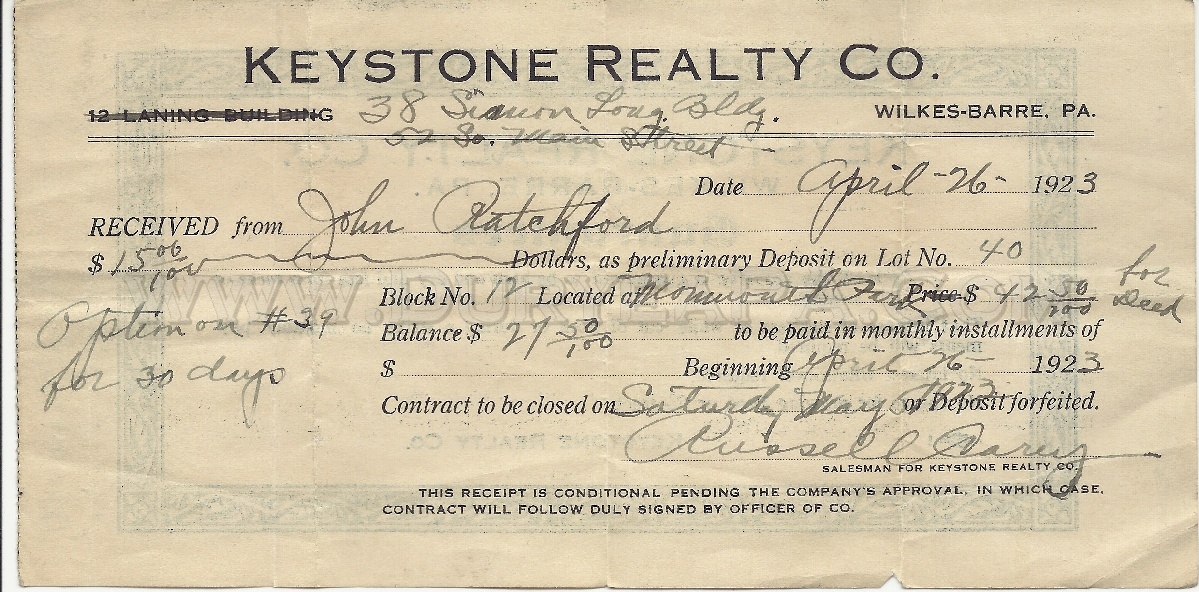 KEYSTONE REALTY CO.
12 LANING BUILDING 38 Simon Long Bldg. WILKES-BARRE, PA.
52 So. Main Street
Date April-26- 1923
RECEIVED from John Ratchford
$ 15 00/100 Dollars, as preliminary Deposit on Lot No. 40
Block No. 12 Located at Park Price $ 42 50/100 for Deed
Option on #39 Balance $ 27 50/100 to be paid in monthly installments of
for 30 days $ Beginning April 26 1923
Contract to be closed on Saturdy May 5 1923 or Deposit forfeited.
Russell
SALESMAN FOR KEYSTONE REALTY CO.
THIS RECEIPT IS CONDITIONAL PENDING THE COMPANY'S APPROVAL, IN WHICH CASE,
CONTRACT WILL FOLLOW DULY SIGNED BY OFFICER OF CO.